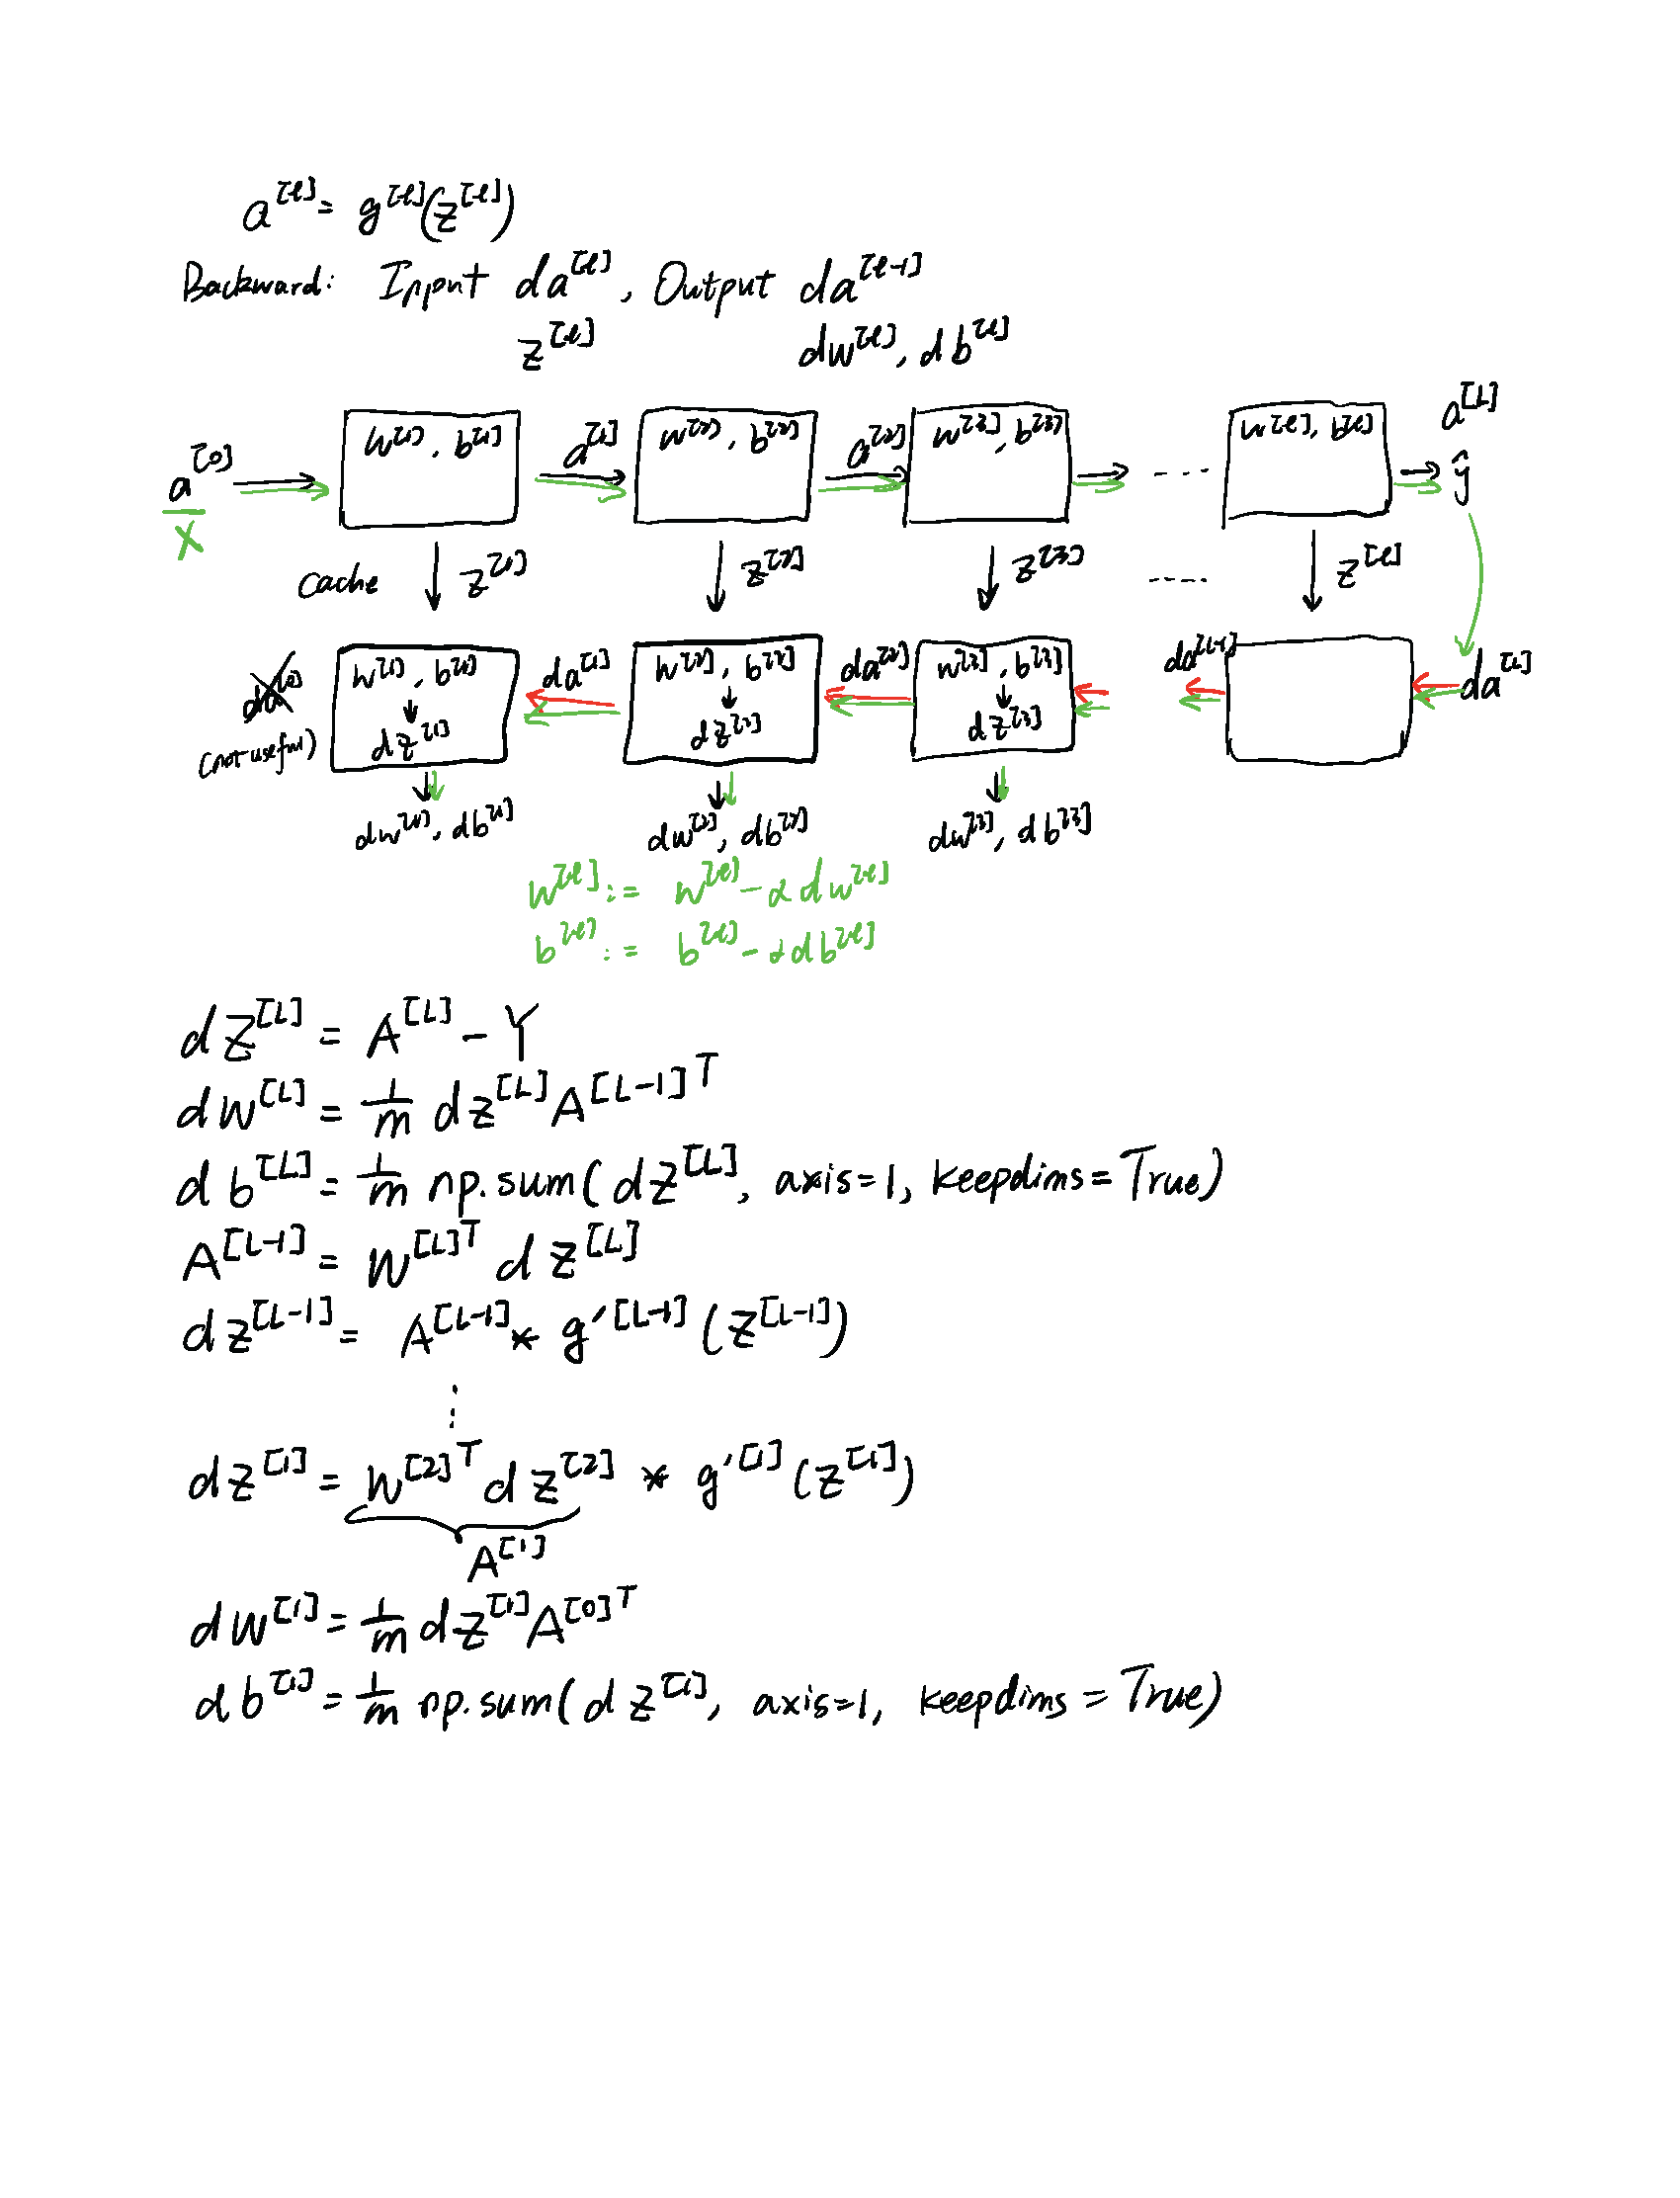 a^[l] = g^[l](z^[l])
Backward: Input da^[l], Output da^[l-1]
z^[l] dw^[l], db^[l]
a^[0] w^[1], b^[1] a^[1] w^[2], b^[2] a^[2] w^[3], b^[3] ···· w^[l], b^[l] a^[L]
X ŷ
Cache z^[1] z^[2] z^[3] ···· z^[l]
da^[0] w^[1], b^[1] da^[1] w^[2], b^[2] da^[2] w^[3], b^[3] da^[L-1] da^[L]
(not useful) dz^[1] dz^[2] dz^[3]
dw^[1], db^[1] dw^[2], db^[2] dw^[3], db^[3]
w^[l] := w^[l] - α dw^[l]
b^[l] := b^[l] - α db^[l]
dZ^[L] = A^[L] - Y
dW^[L] = 1/m dZ^[L] A^[L-1]^T
db^[L] = 1/m np.sum(dZ^[L], axis=1, keepdims=True)
A^[L-1] = W^[L]^T dZ^[L]
dZ^[L-1] = A^[L-1] * g'^[L-1](Z^[L-1])
⋮
dZ^[1] = W^[2]^T dZ^[2] * g'^[1](Z^[1])
A^[1]
dW^[1] = 1/m dZ^[1] A^[0]^T
db^[1] = 1/m np.sum(dZ^[1], axis=1, keepdims=True)